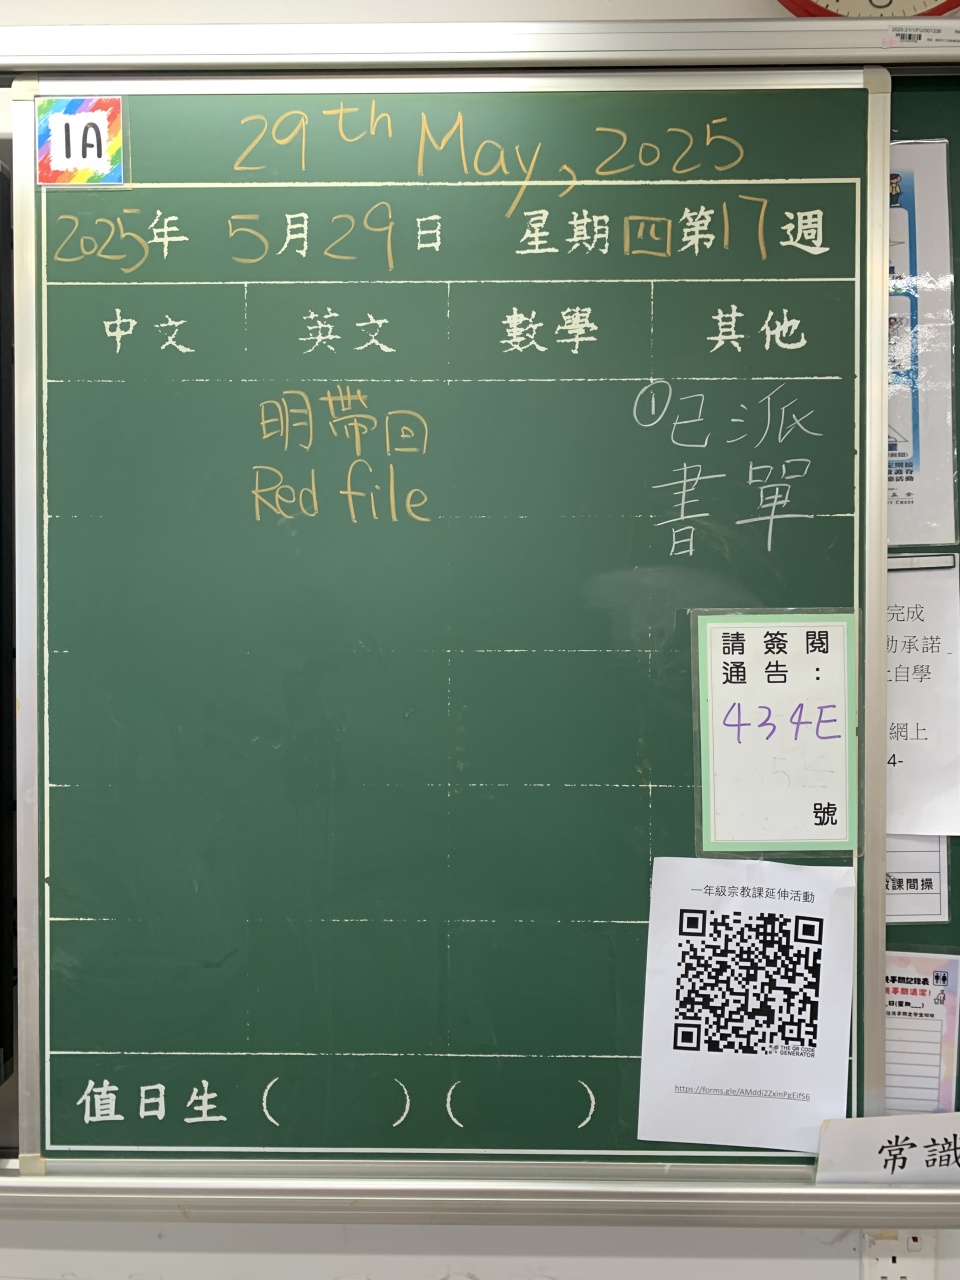 1A
29th May, 2025
2025年 5月29日 星期四第17週
中文 英文 數學 其他
明帶回
Red file
①已派
書單
請簽閱
通告：
434E
號
一年級宗教課延伸活動
THE QR CODE
GENERATOR
值日生 ( ) ( )
完成
動承諾
上自學
網上
4-
課間操
常識